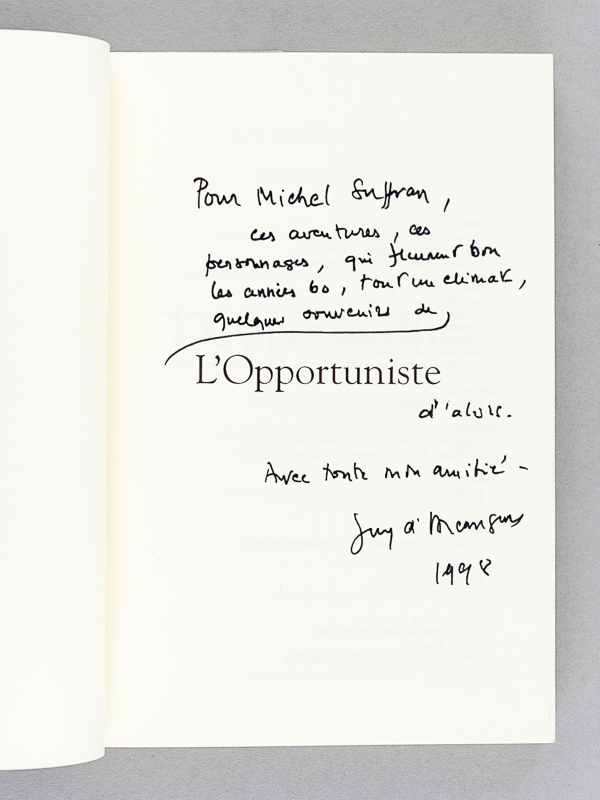 Pour Michel Suffran,
ces aventures, ces
personnages, qui fleurent bon
les années 60, tout un climat,
quelques souvenirs de
L'Opportuniste
d'alors.
Avec toute mon amitié -
Guy d'Arcangues
1998